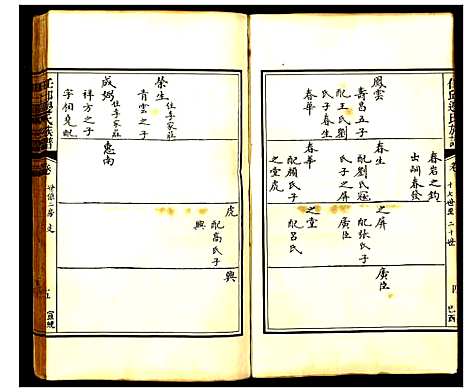 任邱邊氏族譜
卷
十七世至二十世
四
鳳雲
壽昌五子
配王氏劉
氏子春生
春華
春生
配劉氏冠
氏子之屏
春華
配顏氏子
之堂虎
春岩之鈞
出嗣春發
之屏
配張氏子
廣臣
之堂
配呂氏
廣臣
虎
配高氏子
興
興
榮生
住季家莊
青雲之子
成鄉
住季家莊
祥方之子
惠南
任邱邊氏族譜
卷
五
宣統